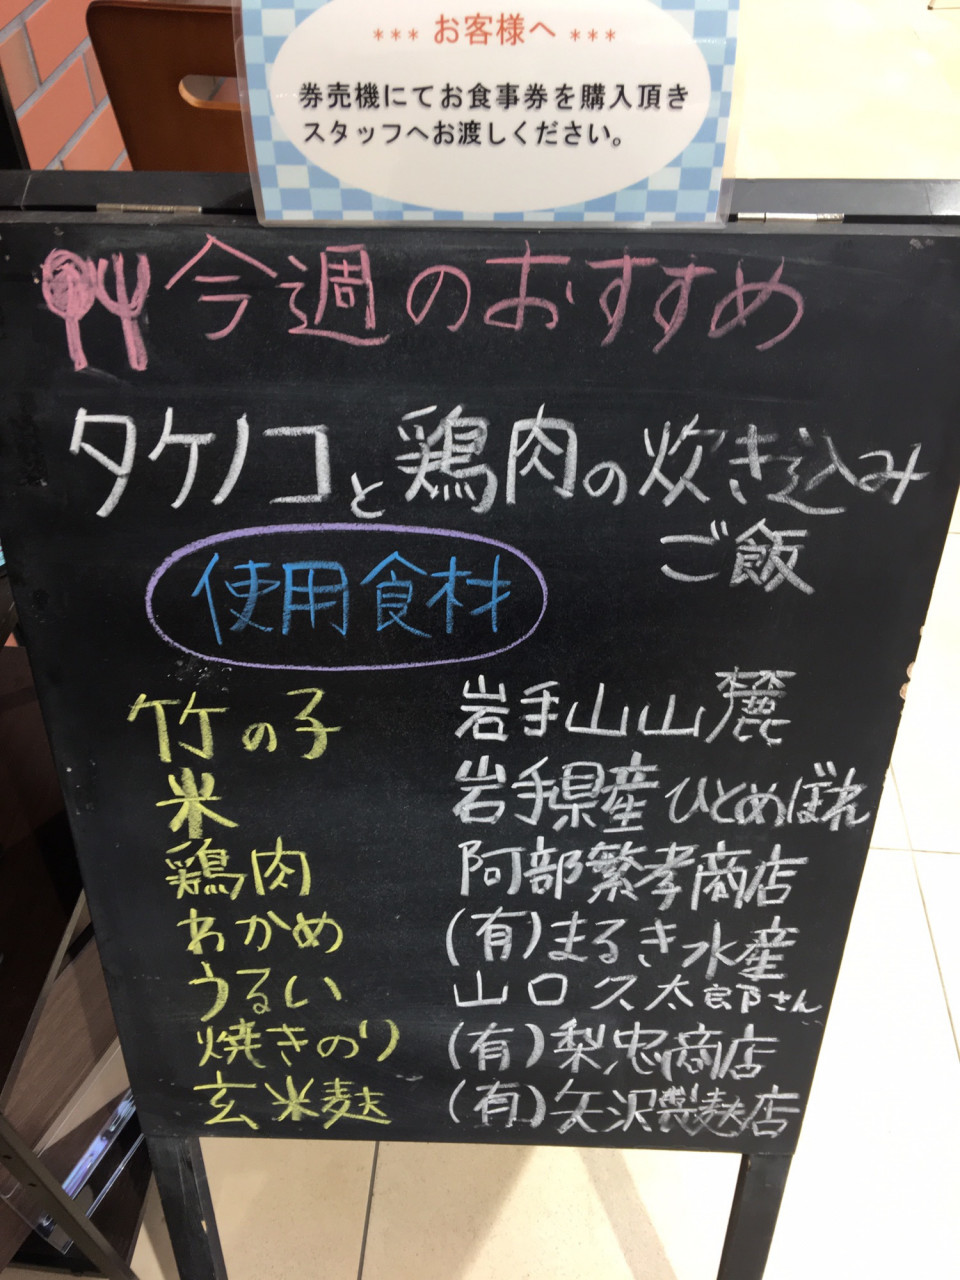 *** お客様へ ***
券売機にてお食事券を購入頂き
スタッフへお渡しください。
今週のおすすめ
タケノコと鶏肉の炊き込み
ご飯
使用食材
竹の子 岩手山山麓
米 岩手県産ひとめぼれ
鶏肉 阿部繁孝商店
わかめ (有)まるき水産
うるい 山口久太郎さん
焼きのり (有)梨忠商店
玄米麩 (有)矢沢製麩店